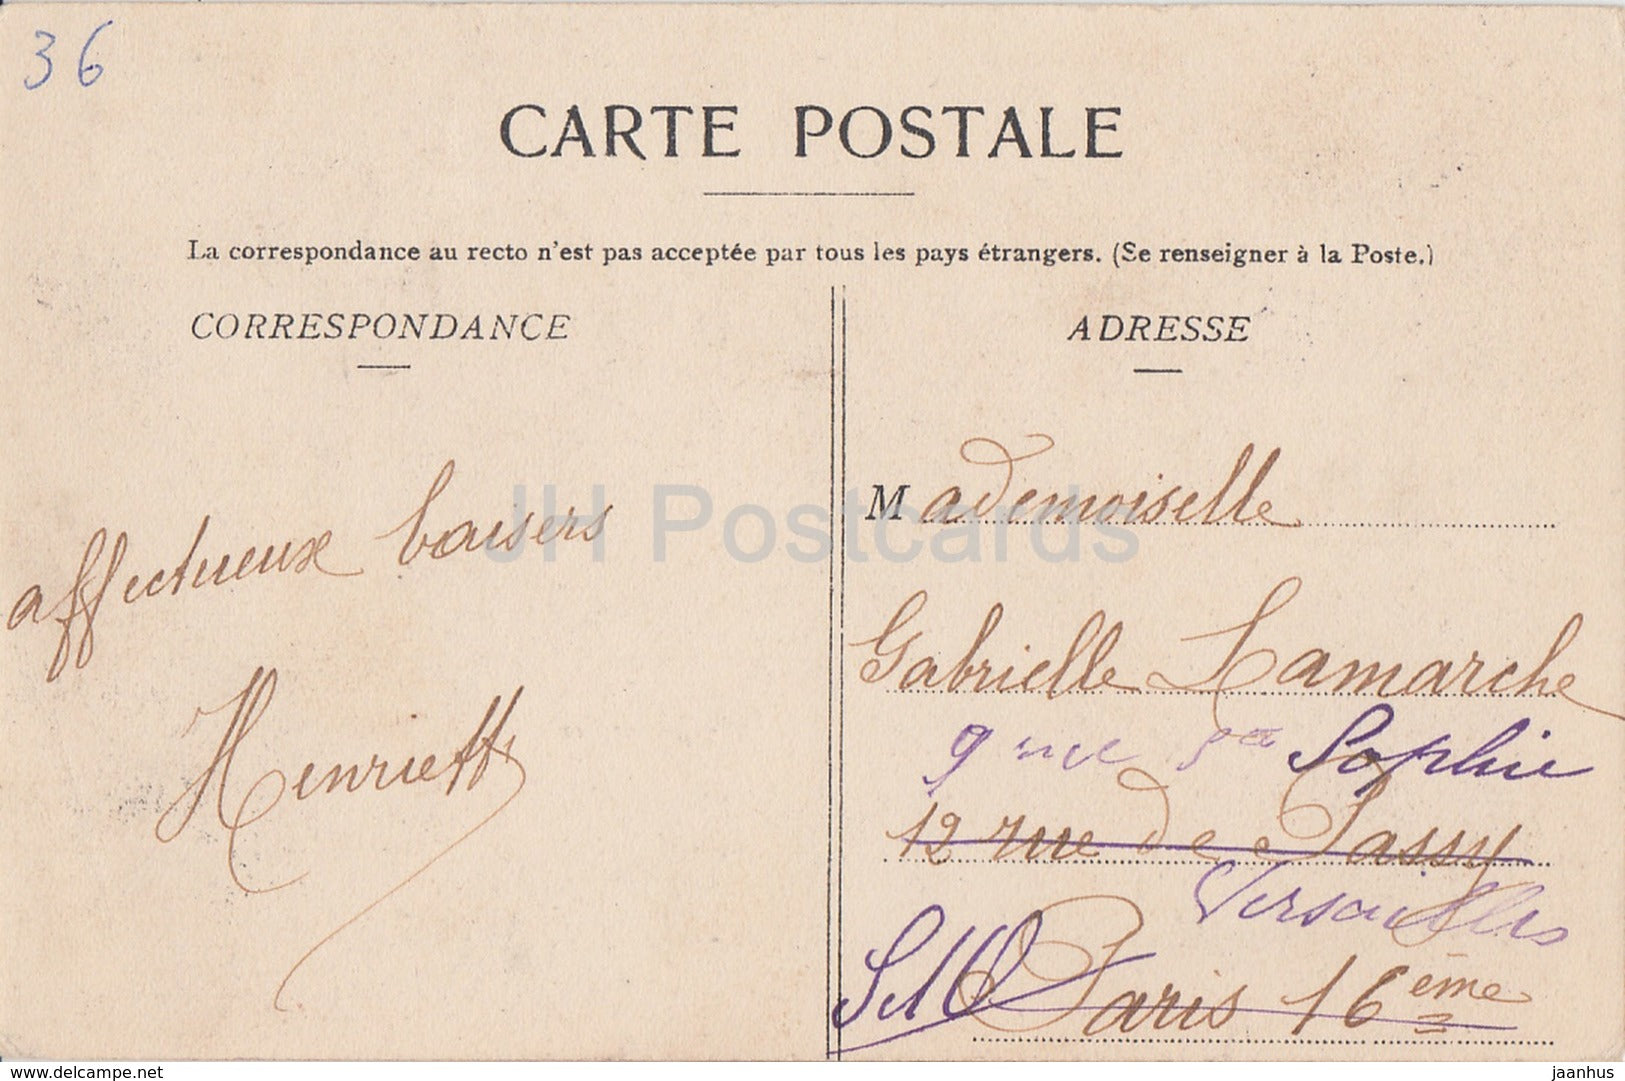 36
CARTE POSTALE
La correspondance au recto n'est pas acceptée par tous les pays étrangers. (Se renseigner à la Poste.)
CORRESPONDANCE
affectueux baisers
Henriette
ADRESSE
Mademoiselle
Gabrielle Lamarche
9 rue Ste Sophie
12 rue de Passy
Versailles
S et O
Paris 16ème
JH Postcards
www.delcampe.net
jaanhus